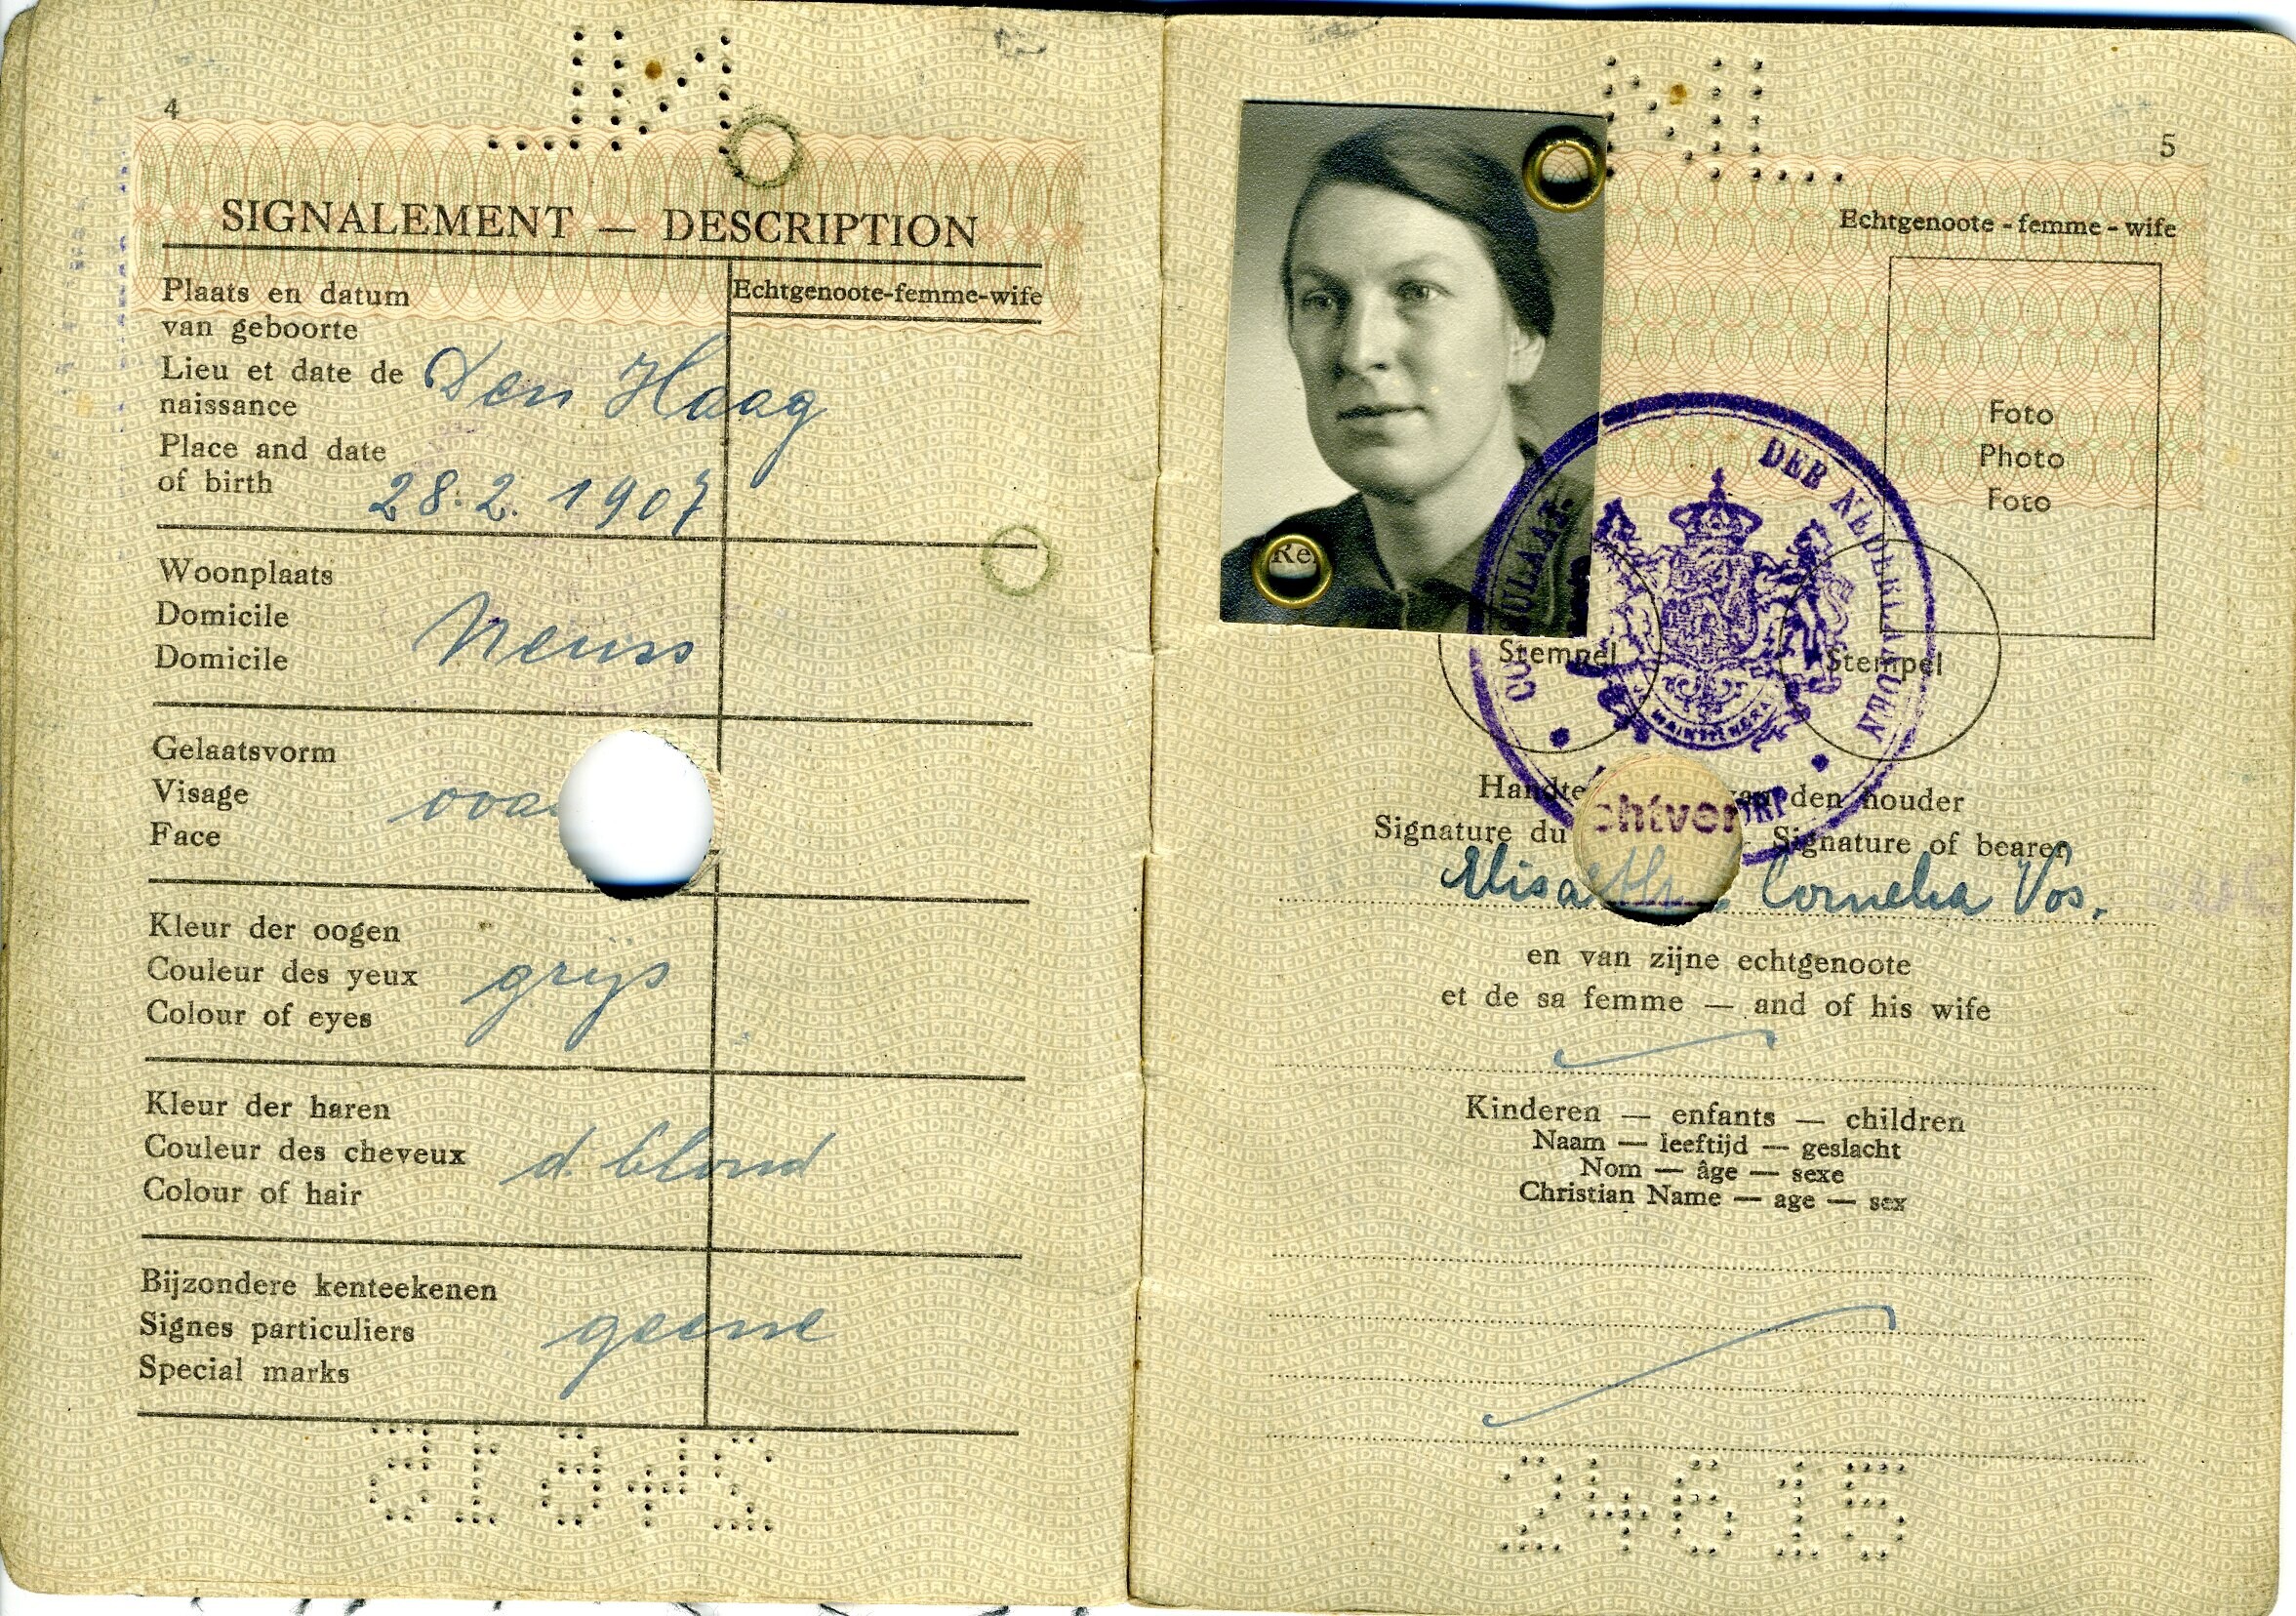 4
SIGNALEMENT — DESCRIPTION
Echtgenoote-femme-wife
Plaats en datum
van geboorte
Lieu et date de
naissance
Place and date
of birth
Den Haag
28.2.1907
Woonplaats
Domicile
Domicile
Neuss
Gelaatsvorm
Visage
Face
Kleur der oogen
Couleur des yeux
Colour of eyes
grijs
Kleur der haren
Couleur des cheveux
Colour of hair
d. blond
Bijzondere kenteekenen
Signes particuliers
Special marks
geene
24615
NL
5
Echtgenoote - femme - wife
Foto
Photo
Foto
Re
DER NEDERLANDEN
Stempel
Stempel
van den houder
Signature du
Signature of bearer
Cornelia Vos.
en van zijne echtgenoote
et de sa femme — and of his wife
Kinderen — enfants — children
Naam — leeftijd — geslacht
Nom — âge — sexe
Christian Name — age — sex
24615